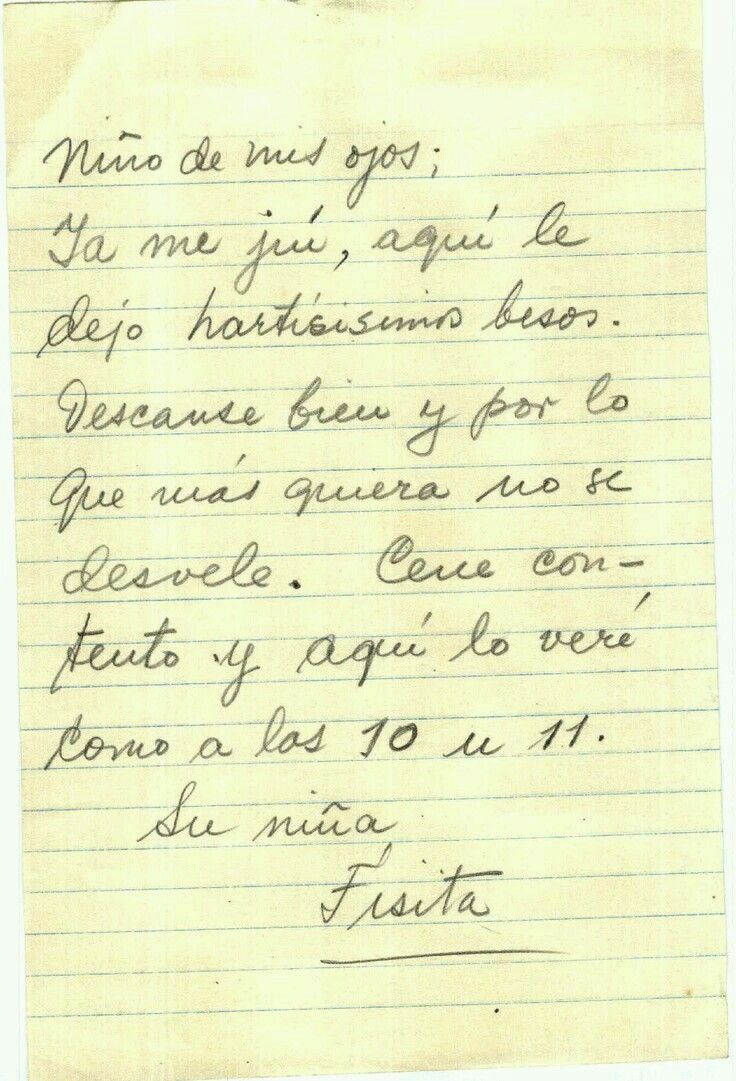 Niño de mis ojos;
Ya me juí, aquí le
dejo hartísisimos besos.
Descanse bien y por lo
que más quiera no se
desvele. Cene con-
tento y aquí lo veré
como a las 10 u 11.
Su niña
Fisita